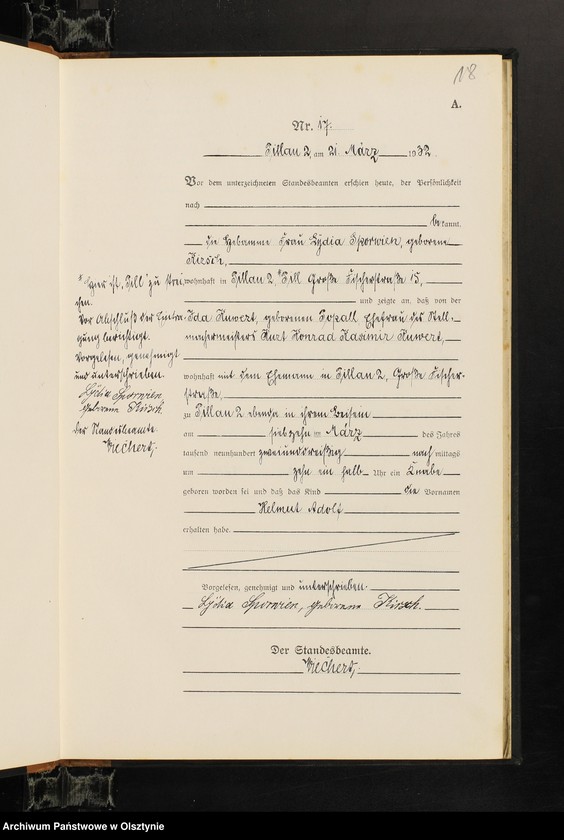 18
A.
Nr. 17.
Pillau 2, am 21. März 1932.
Vor dem unterzeichneten Standesbeamten erschien heute, der Persönlichkeit
nach
bekannt,
die Hebamme Frau Lydia Sporwien, geborene
Kirsch,
wohnhaft in Pillau 2, Große Fischerstraße 15,
und zeigte an, daß von der
Ida Huwert, geborenen Ehefrau des Stell-
machermeisters Kurt Konrad Kasimir Huwert,
wohnhaft mit dem Ehemann in Pillau 2, Große Fischer-
straße,
zu Pillau 2 ebenda in ihrem Beisein
am siebzehn März des Jahres
tausend neunhundert zweiunddreißig nachmittags
um zehn ein halb Uhr ein Knabe
geboren worden sei und daß das Kind die Vornamen
Helmut Adolf
erhalten habe.
Vorgelesen, genehmigt und unterschrieben.
Lydia Sporwien, geborene Kirsch.
Der Standesbeamte.
Wiechert,
Hier ist zu strei-
chen.
Vor Abschluß der Eintra-
gung berichtigt.
Vorgelesen, genehmigt
und unterschrieben.
Lydia Sporwien,
geborene Kirsch.
Der Standesbeamte.
Wiechert,
Archiwum Państwowe w Olsztynie